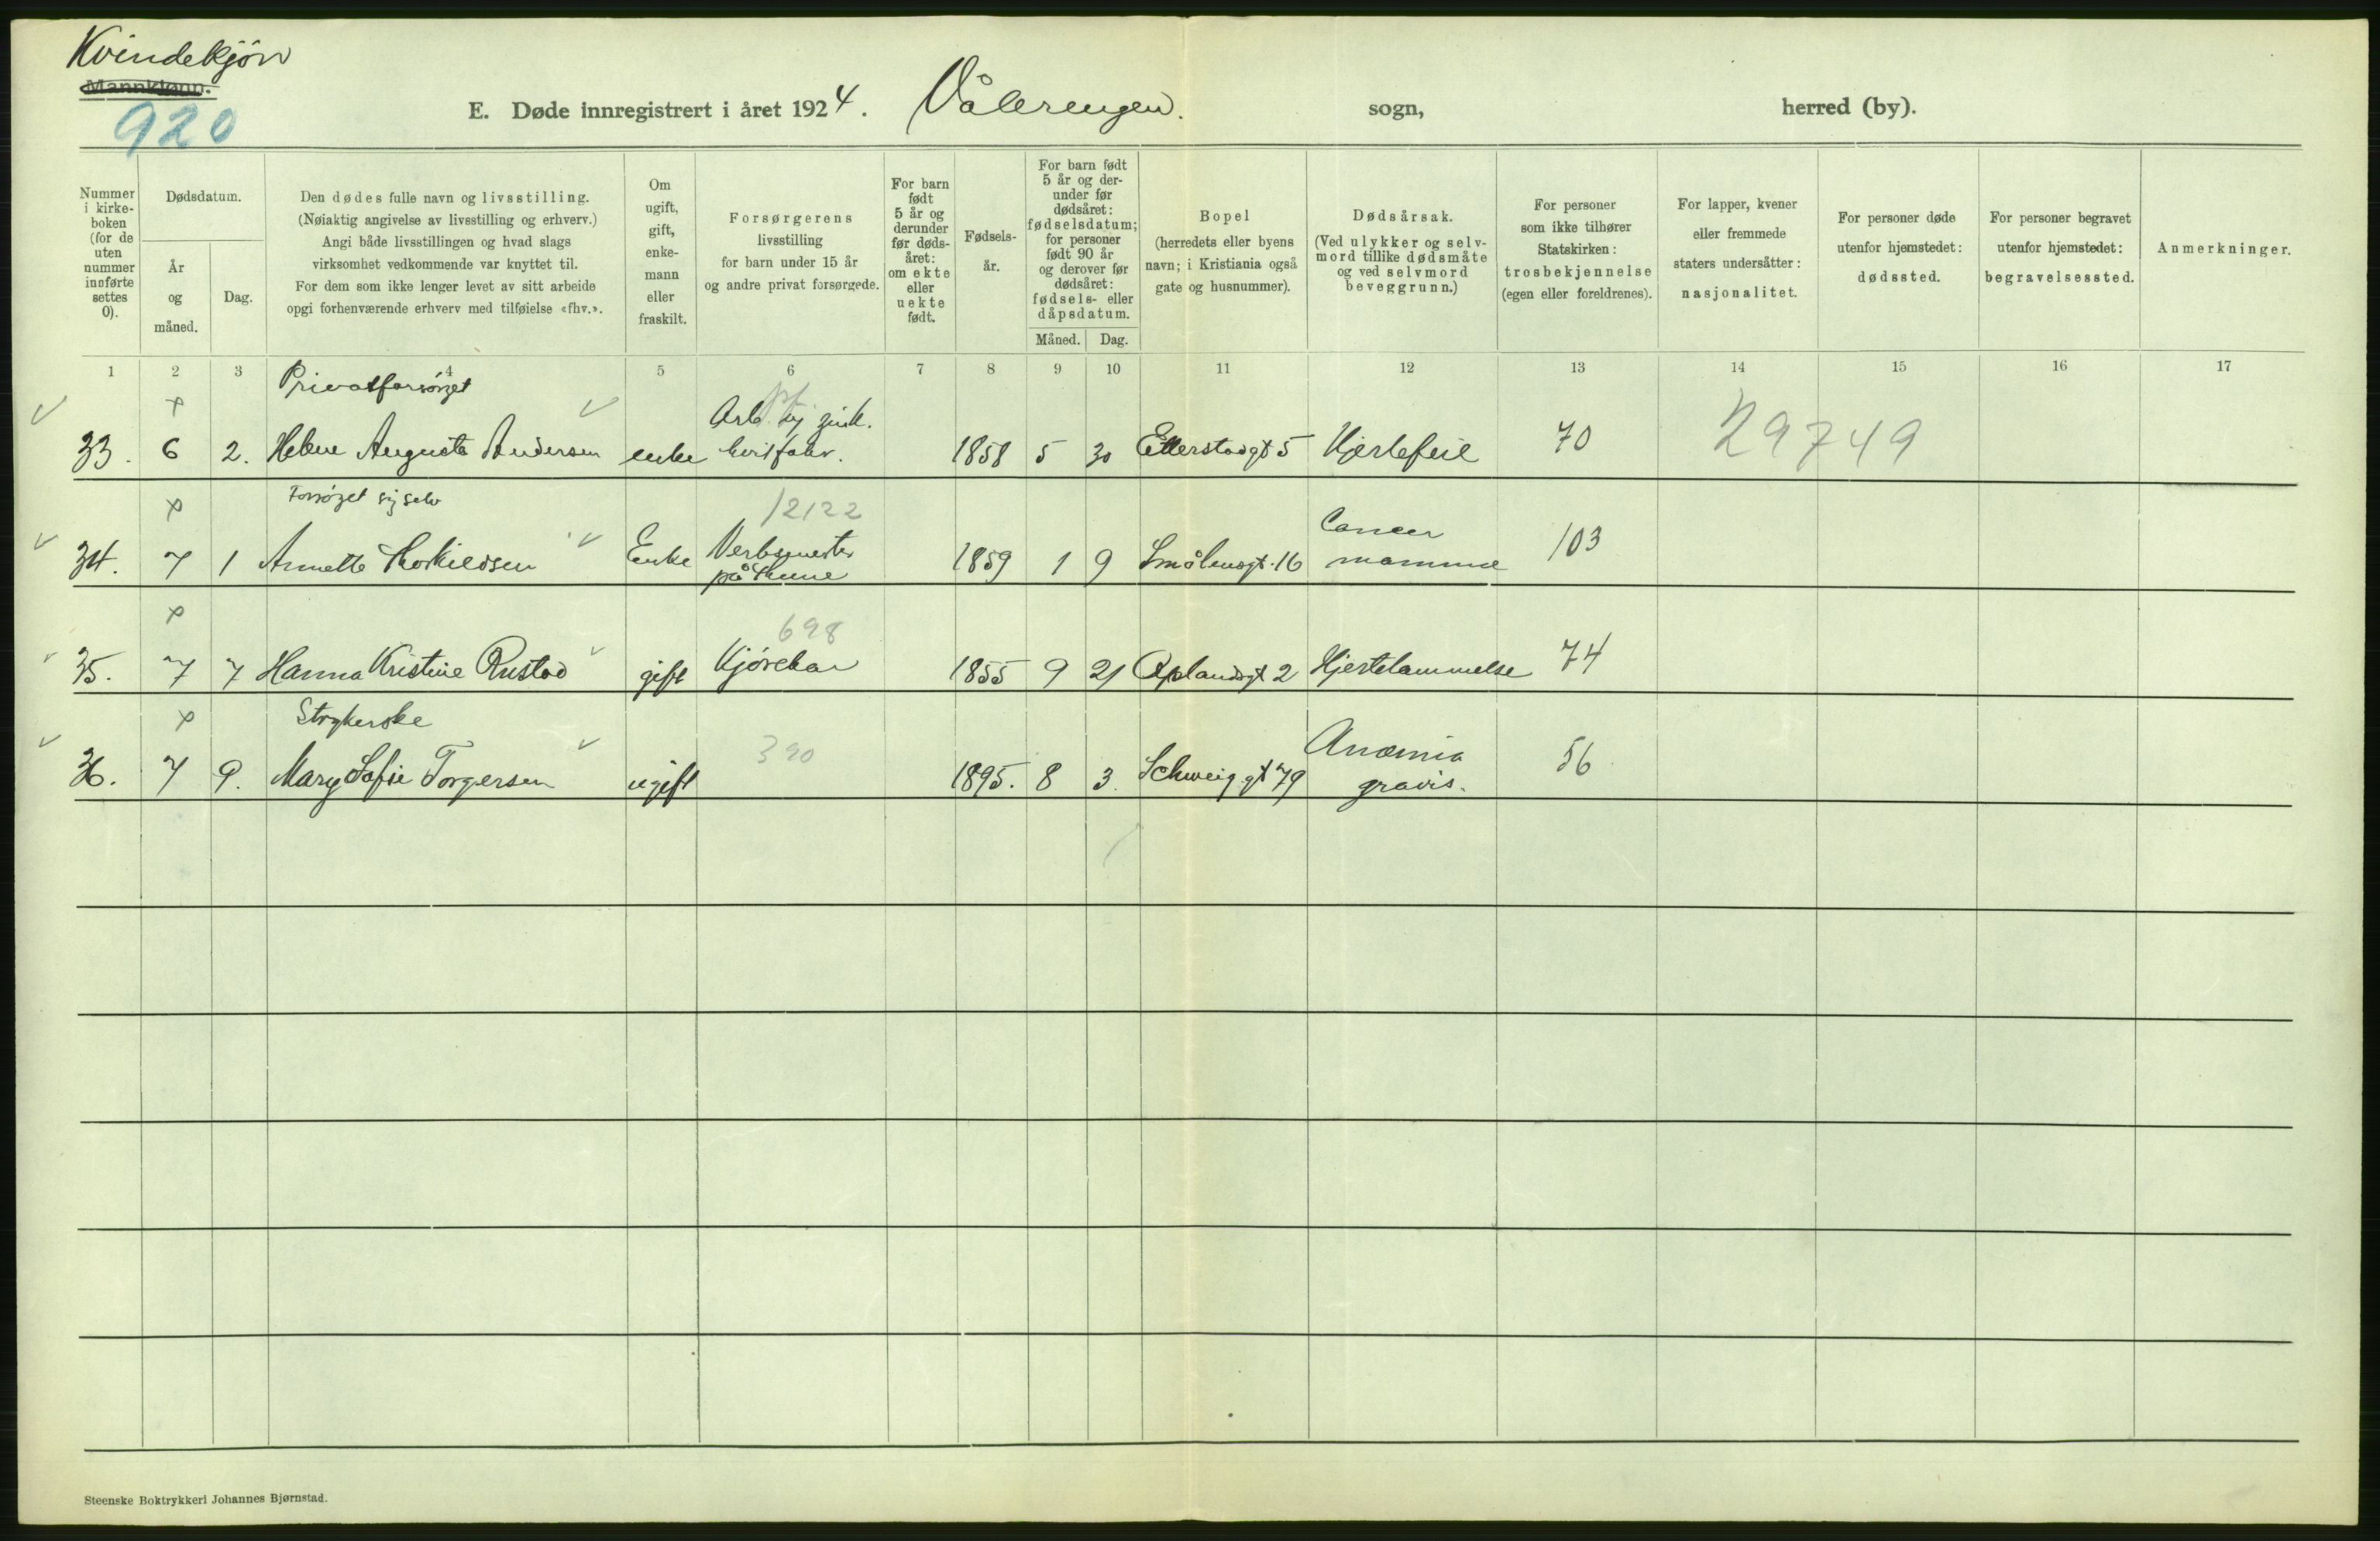 Kvindekjön
Mannkjønn.
920
E. Døde innregistrert i året 1924. Vålerengen. sogn, herred (by).
Nummer i kirkeboken (for de uten nummer innførte settes 0).
Dødsdatum.
År og måned.
Dag.
Den dødes fulle navn og livsstilling.
(Nøiaktig angivelse av livsstilling og erhverv.)
Angi både livsstillingen og hvad slags
virksomhet vedkommende var knyttet til.
For dem som ikke lenger levet av sitt arbeide
opgi forhenværende erhverv med tilføielse «fhv.».
Om ugift, gift, enkemann eller fraskilt.
Forsørgerens
livsstilling
for barn under 15 år
og andre privat forsørgede.
For barn født 5 år og derunder før dødsåret: om ekte eller uekte født.
Fødselsår.
For barn født 5 år og derunder før dødsåret: fødselsdatum; for personer født 90 år og derover før dødsåret: fødsels- eller dåpsdatum.
Måned. Dag.
Bopel
(herredets eller byens
navn; i Kristiania også
gate og husnummer).
Dødsårsak.
(Ved ulykker og selvmord tillike dødsmåte og ved selvmord beveggrunn.)
For personer
som ikke tilhører
Statskirken:
trosbekjennelse
(egen eller foreldrenes).
For lapper, kvener
eller fremmede
staters undersåtter:
nasjonalitet.
For personer døde
utenfor hjemstedet:
dødssted.
For personer begravet
utenfor hjemstedet:
begravelsessted.
Anmerkninger.
1 2 3 4 5 6 7 8 9 10 11 12 13 14 15 16 17
Privatforsørget
33. 6 2. Helene Augusta Andersen enke 1858 5 30 Etterstadgt 5 Hjertefeil 70 29749
Forsørget sig selv
12122
34. 7 1 Annette Thorkildsen Enke Verksmester på Thune 1859 1 9 Smålensgt. 16 Cancer mammae 103
698
35. 7 7 Hanna Kristine Rustad gift Kjørekar 1855 9 21 Oplandsgt 2 Hjertelammelse 74
Strykerske
390
36. 7 9. Mary Sofie Torgersen ugift 1895. 8 3. Schweig.gt 79 Anæmia gravis. 56
Steenske Boktrykkeri Johannes Bjørnstad.